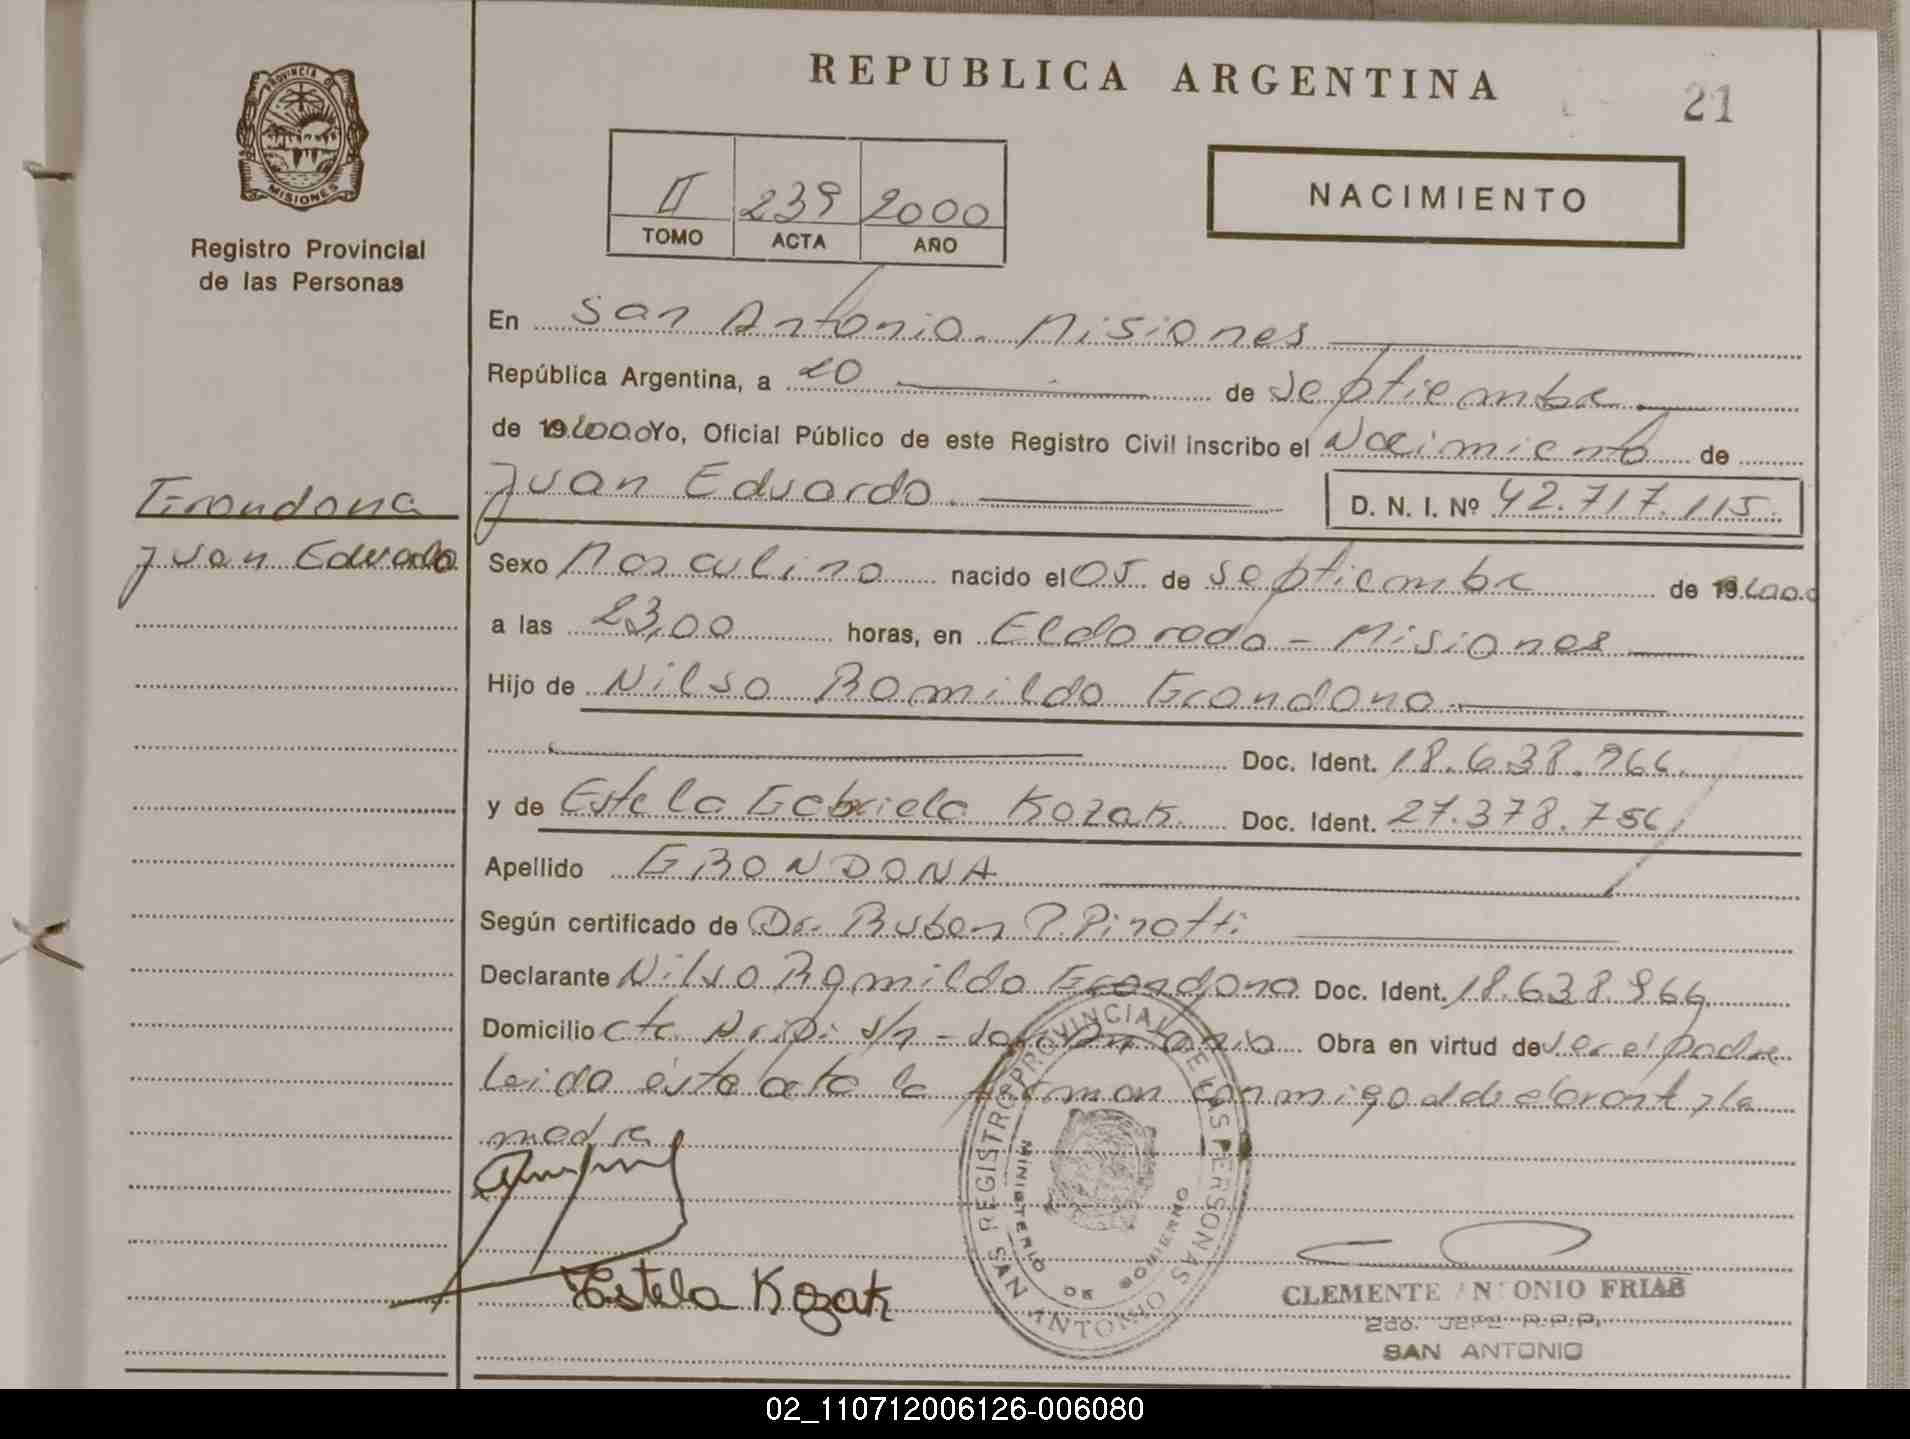 REPUBLICA ARGENTINA
21
PROVINCIA DE
MISIONES
Registro Provincial
de las Personas
II 239 2000
TOMO ACTA AÑO
NACIMIENTO
En San Antonio. Misiones
República Argentina, a 20 de septiembre
de 19 2000 Yo, Oficial Público de este Registro Civil inscribo el Nacimiento de
Juan Eduardo. D. N. I. Nº 42.717.115.
Grondona
Juan Eduardo
Sexo Masculino nacido el 05 de septiembre de 19 2000
a las 23,00 horas, en Eldorado - Misiones
Hijo de Nilso Romildo Grondona
Doc. Ident. 18.638.966.
y de Estela Gabriela Kozak. Doc. Ident. 27.378.756
Apellido GRONDONA
Según certificado de Dr. Ruben P. Pirotti
Declarante Nilso Romildo Grondona Doc. Ident. 18.638.966
Domicilio s/n - San Antonio Obra en virtud de ser el padre
Leida ésta acta la firman conmigo el declarante y la
madre
Estela Kozak
REGISTRO PROVINCIAL DE LAS PERSONAS
MINISTERIO DE GOBIERNO
SAN ANTONIO
CLEMENTE ANTONIO FRIAS
2do. JEFE R.P.P.
SAN ANTONIO
02_110712006126-006080